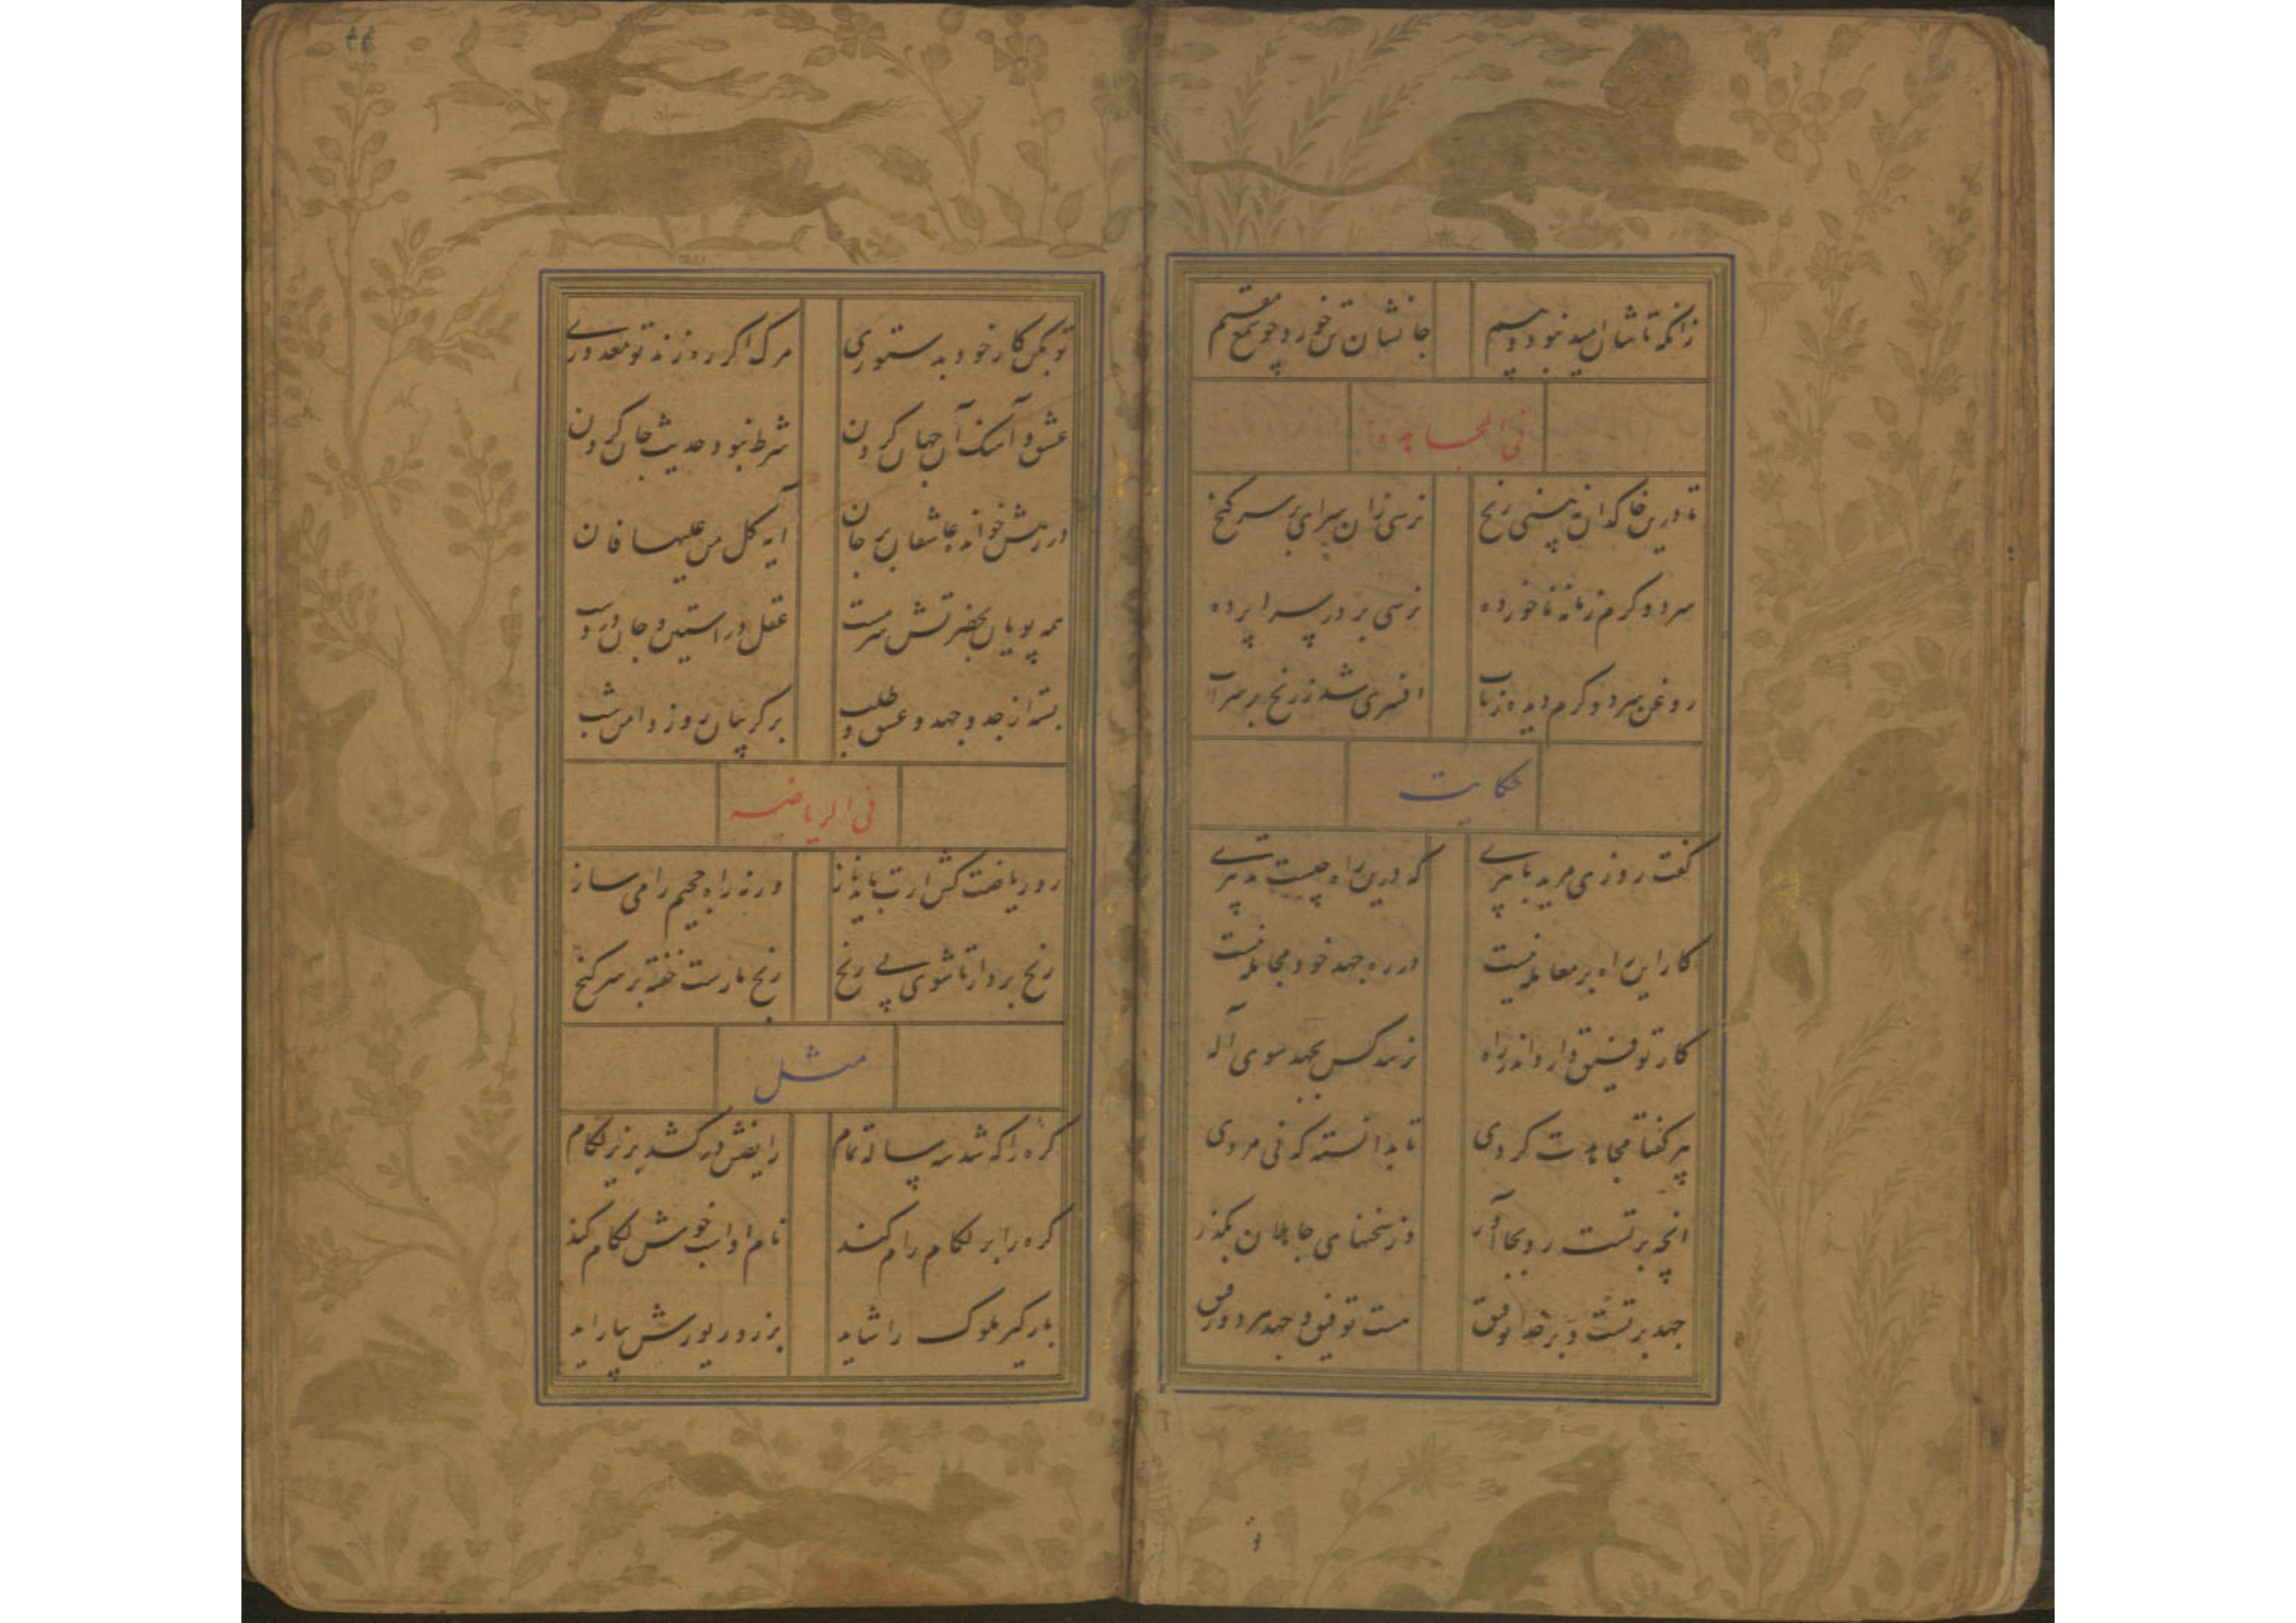 زانکه تاشان امید نبود و بیم جانشان تن خورد چو شمع مقیم
فی المجاهده
تا درین خاکدان نبینی رنج نرسی زان سرای بر سر گنج
سرد و گرم زمانه ناخورده نرسی بر در سراپرده
روغن سرد و گرم دیده ز ناب افسری شد ز رنج بر سر آب
حکایت
گفت روزی مرید با پیری که درین راه چیست تدبیری
کار این راه بر معامله نیست در ره جهد خود مجامله نیست
کار توفیق دارد اندر راه نرسد کس بجهد سوی اله
پیر گفتا مجاهدت کردی تا بدانسته که فی مردی
انچه بر تست رو بجا آور وز سخنهای جاهلان بگذر
جهد بر تست و بر خدا توفیق هست توفیق و جهد هر دو رفیق
۴۴
تو بکن کار خود به ستوری مرک اکر ره زند تو معذوری
عشق و آهنک آن جهان کردن شرط نبود حدیث جان کردن
در رهش خوانده عاشقان بر جان آیه کل من علیها فان
همه پویان بحضرتش سرمست عقل در استین و جان در دست
بسته از جد و جهد و عشق و طلب بر کریبان روز دامن شب
فی الریاضه
رو ریاضت کش ارت باید ناز ورنه راه جحیم را می ساز
رنج بردار تا شوی بی رنج رنج مارست خفته بر سر گنج
مثل
کره را که شد سه ساله تمام رایضش در کشد بزیر لکام
کره را بر لکام رام کند نام او اسب خوش لکام کند
بارکیر ملوک را شاید بزر و زیورش بیاراید